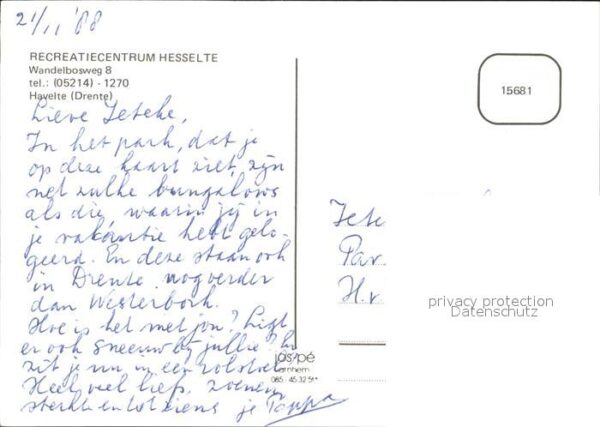 21/11 '88
RECREATIECENTRUM HESSELTE
Wandelbosweg 8
tel.: (05214) - 1270
Havelte (Drente)
15681
Lieve Jeteke,
In het park, dat je
op deze kaart ziet, zijn
net zulke bungalows
als die, waarin jij in
je vakantie hebt gelo-
geerd. En deze staan ook
in Drente, nog verder
dan Westerbork.
Hoe is het met jou? Ligt
er ook sneeuw bij jullie? En
zit je nu in een rolstoel
Heel veel liefs, zoenen
sterkte en tot ziens je Pappa
Jete
Par
H.v
privacy protection
Datenschutz
jos-pé
arnhem
085-45 32 51*